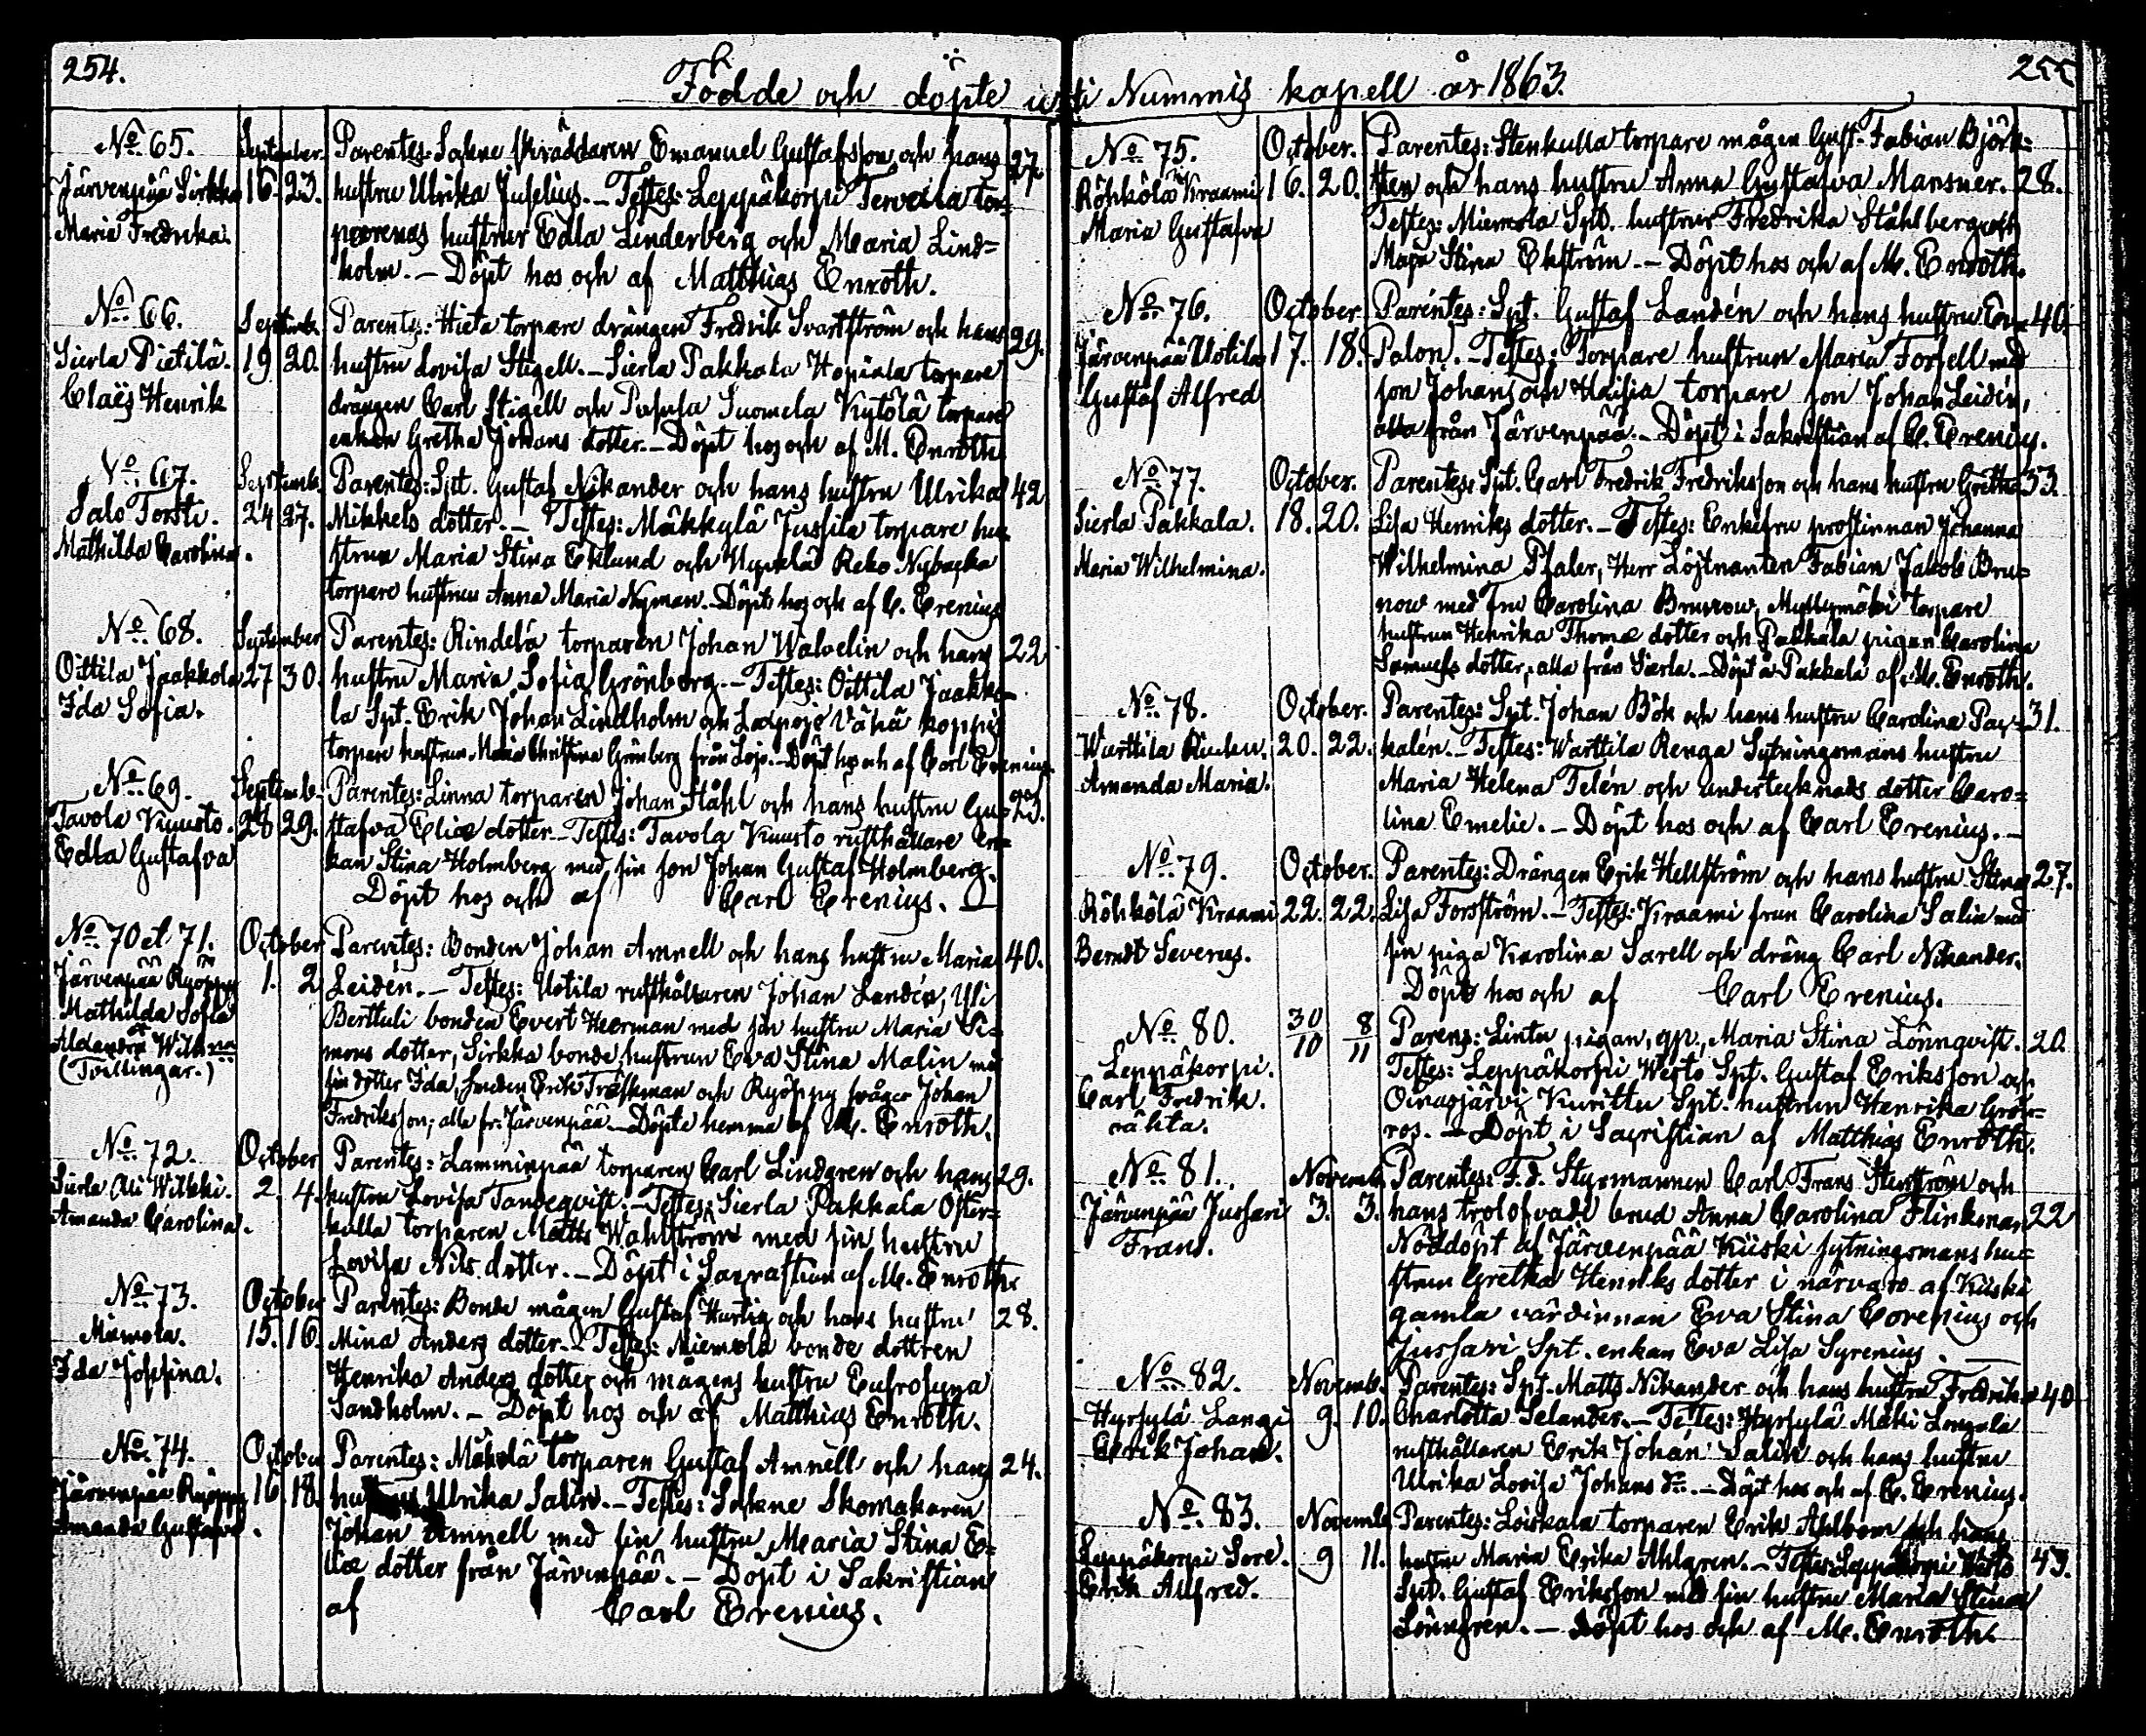 254.
Födde och döpte uti Nummis kapell år 1863.
255
No 65.
Järvenpää Sirkka
Maria Fredrika.
September.
16. 23.
Parentes: Sokne skräddaren Emanuel Gustafsson och hans
hustru Ulrika Juselius. - Testes: Leppäkorpi Tervala tor-
parenas hustrur Edla Linderberg och Maria Lind-
holm. - Döpt hos och af Matthias Enroth.
27.
No 66.
Sierla Pietilä.
Claës Henrik
Septemb.
19 20.
Parentes: Hieta torpare drängen Fredrik Svartström och hans
hustru Lovisa Stigell. - Sierla Pakkala Hopiala torpare
drängen Carl Stigell och Pususa Suomela Kytölä torpare
enkan Gretha Johans dotter. - Döpt hos och af M. Enroth
29.
No 67.
Salo Torsti.
Mathilda Carolina.
Septemb.
24 27.
Parentes: Spt. Gustaf Nikander och hans hustru Ulrika
Mikkels dotter. - Testes: Mäkkylä Jussila torpare hu-
strun Maria Stina Eklund och Hyrsylä Reko Nybacka
torpare hustrun Anna Maria Nyman. - Döpt hos och af C. Erenius
42
No 68.
Oittila Jaakkola
Ida Sofia.
September
27 30.
Parentes: Rindelä torparen Johan Walvelin och hans
hustru Maria Sofia Grönberg. - Testes: Oittila Jaakko-
la Spt. Erik Johan Lindholm och Vähä koppis
torpare hustrun Maria Christina Grönberg från Lojo. - Döpt hos och af Carl Erenius.
22
No 69.
Tavola Kuusto.
Edla Gustafva
Septemb.
28 29.
Parentes: Linna torparen Johan Ståhl och hans hustru Gu-
stafva Eliæ dotter. - Testes: Tavola Kuusto rusthållare en-
kan Stina Holmberg med sin son Johan Gustaf Holmberg.
Döpt hos och af Carl Erenius.
25.
No 70 et 71.
Järvenpää Ryöppy
Mathilda Sofia
et
Alexandra Wilhna
(Tvillingar.)
October
1. 2
Parentes: Bonden Johan Amnell och hans hustru Maria
Leidén. - Testes: Uotila rusthållaren Johan Landén, Yli
Berttuli bonden Evert Herman med sin hustru Maria Si-
mons dotter, Sirkka bonde hustrun Eva Stina Malin med
sin dotter Ida, Smeden Erik Träskman och Ryöppy svåger Johan
Fredriksson; alla fr. Järvenpää. - Döpte hemma af M. Enroth.
40.
No 72.
Sierla Ali Wikki.
Amanda Carolina.
October
2. 4.
Parentes: Lamminpää torparen Carl Lindgren och hans
hustru Lovisa Tandeqvist. - Testes: Sierla Pakkala Öster-
kulla torparen Matts Wahlström med sin hustru
Lovisa Nils dotter. - Döpt i Sacrastian af M. Enroth.
29.
No 73.
Miemola.
Ida Josefina.
October
15. 16.
Parentes: Bonde mågen Gustaf Hurtig och hans hustru
Mina Anders dotter. - Testes: Miemola bonde dottren
Henrika Anders dotter och mågens hustru Eufrosyna
Sandholm. - Döpt hos och af Matthias Enroth.
28.
No 74.
Järvenpää Ryöppy
Amanda Gustafva.
October
16 18.
Parentes: Mäkelä torparen Gustaf Amnell och hans
hustru Ulrika Salin. - Testes: Sokne Skomakaren
Johan Amnell med sin hustru Maria Stina E-
liæ dotter från Järvenpää. - Döpt i Sakristian
af Carl Erenius.
24.
No 75.
Röhkölä Kraami
Maria Gustafva
October.
16. 20.
Parentes: Stenkulla torpare mågen Gust. Fabian Björk-
sten och hans hustru Anna Gustafva Mansner.
Testes: Miemola Spt. hustrur Fredrika Ståhlberg och
Maja Stina Ekström. - Döpt hos och af M. Enroth.
28.
No 76.
Järvenpää Uotila
Gustaf Alfred
October
17. 18.
Parentes: Spt. Gustaf Landén och hans hustru Eva
Polon. - Testes: Torpare hustrun Maria Forsell med
son Johan och Haisia torpare son Johan Leidén,
alla från Järvenpää. - Döpt i Sakristian af C. Erenius.
40.
No 77.
Sierla Pakkala.
Maria Wilhelmina.
October.
18. 20.
Parentes: Spt. Carl Fredrik Fredriksson och hans hustru Gretha
Lisa Henriks dotter. - Testes: Enkefru prostinnan Johanna
Wilhelmina Psaler, Herr Löjtnanten Fabian Jakob Bru-
now med fru Carolina Brunow, Myllymäki torpare
hustrun Henrika Thomæ dotter och Pakkala pigan Carolina
Samuels dotter, alla från Sierla. - Döpt å Pakkala af M. Enroth.
33.
No 78.
Warttila
Amanda Maria.
October.
20. 22.
Parentes: Spt. Johan Bök och hans hustru Carolina Pas-
kalén. - Testes: Warttila Renga Sytningsmans hustru
Maria Helena Telén och undertecknads dotter Caro-
lina Emelie. - Döpt hos och af Carl Erenius. -
31.
No 79.
Röhkölä Kraami
Berndt Severus.
October.
22. 22.
Parentes: Drängen Erik Hellström och hans hustru Stina
Lisa Forsström. - Testes: Kraami frun Carolina Salin med
sin piga Karolina Sarell och dräng Carl Nikander.
Döpt hos och af Carl Erenius.
27.
No 80.
Leppäkorpi.
Carl Fredrik.
oähta.
30/10 8/11
Parens: Lintu pigan, qp, Maria Stina Lönnqvist.
Testes: Leppäkorpi Westo Spt. Gustaf Eriksson och
Oinasjärvi Kurittu Spt. hustrun Henrika Grön-
ros. - Döpt i Sacristian af Matthias Enroth.
20.
No 81.
Järvenpää Jussari
Frans.
Novemb.
3. 3.
Parentes: F.d. Styrmannen Carl Frans Stenström och
hans trolofvade brud Anna Carolina Flinkman
Nöddöpt af Järvenpää Kiiski sytningsmans hu-
strun Gretha Henriks dotter i närvaro af Kiiski
gamla värdinnan Eva Stina Corenius och
Jussari Spt. enkan Eva Lisa Syrenius.
22
No 82.
Hyrsylä Langi
Erik Johan.
Novemb.
9. 10.
Parentes: Spt. Matts Nikander och hans hustru Fredrika
Charlotta Selander. - Testes: Hyrsylä Mäki
rusthållaren Erik Johan Salin och hans hustru
Ulrika Lovisa Johans dr. - Döpt hos och af C. Erenius.
40
No 83.
Leppäkorpi Sore.
Erik Alfred.
Novemb.
9 11.
Parentes: Loiskala torparen Erik Ahlbom och hans
hustru Maria Erika Ahlgren. - Testes: Leppäkorpi Westo
Spt. Gustaf Eriksson med sin hustru Maria Stina
Lönngren. - Döpt hos och af M. Enroth.
43.